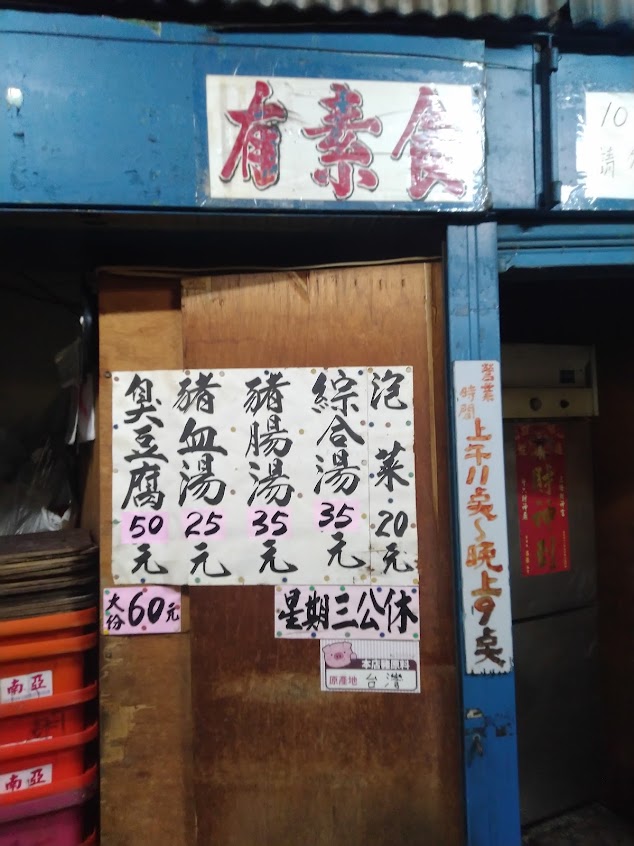 有素食
10
臭豆腐50元
豬血湯25元
豬腸湯35元
綜合湯35元
泡菜.20元
大份60元
星期三公休
本店豬原料
原產地 台灣
營業時間
上午11點~晚上9點
財神到
南亞
南亞